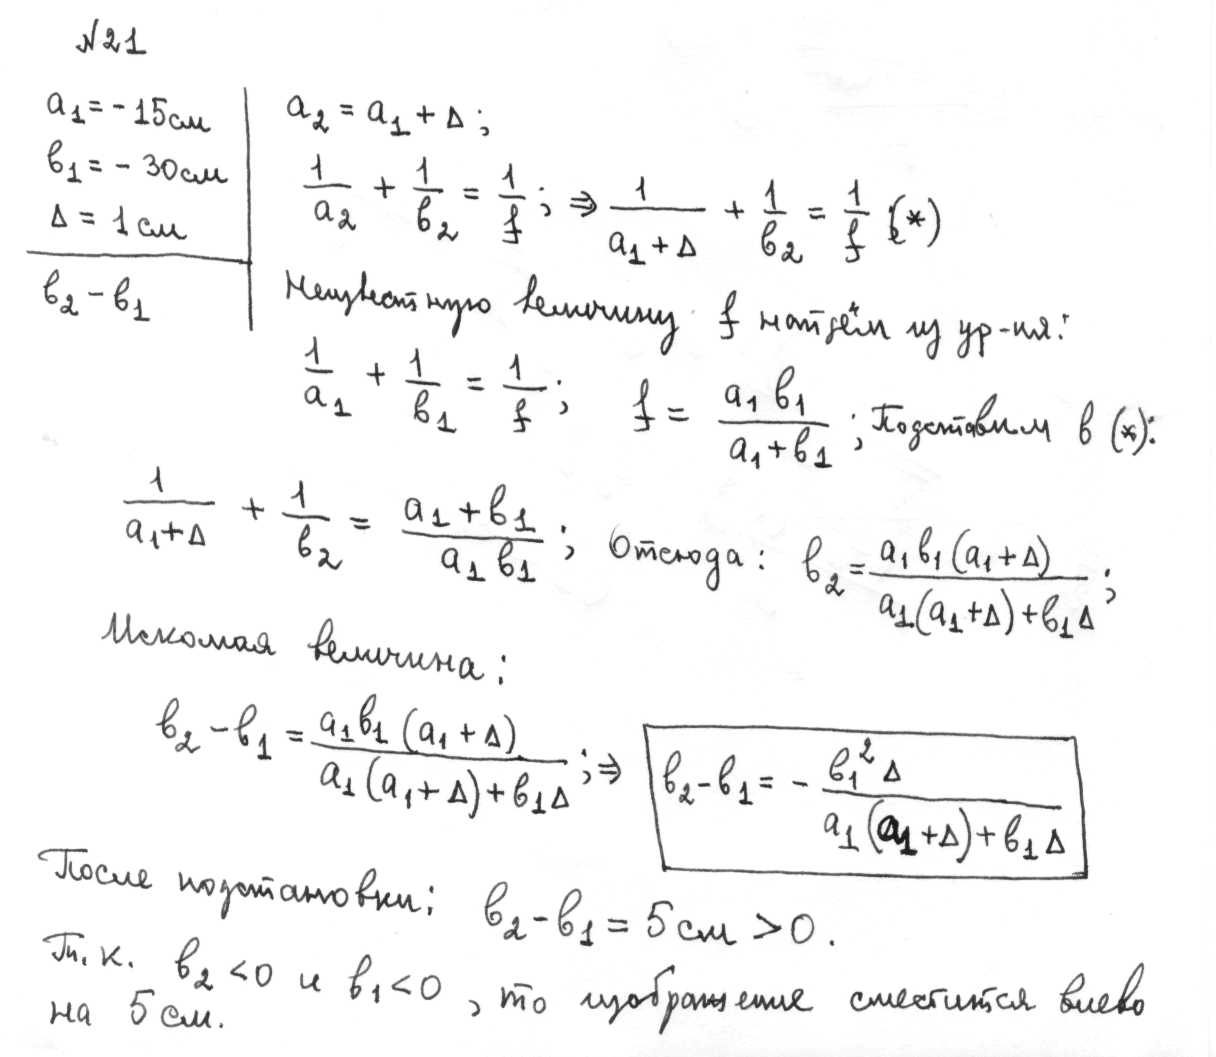 №21
a₁ = - 15 см
в₁ = - 30 см
Δ = 1 см
в₂ - в₁
a₂ = a₁ + Δ ;
1/a₂ + 1/в₂ = 1/f ; ⇒ 1/(a₁ + Δ) + 1/в₂ = 1/f (*)
Неизвестную величину f найдём из ур-ия:
1/a₁ + 1/в₁ = 1/f ; f = a₁ в₁/(a₁ + в₁) ; Подставим в (*):
1/(a₁ + Δ) + 1/в₂ = (a₁ + в₁)/(a₁ в₁) ; Отсюда: в₂ = a₁ в₁ (a₁ + Δ)/(a₁ (a₁ + Δ) + в₁ Δ) ;
Искомая величина:
в₂ - в₁ = a₁ в₁ (a₁ + Δ)/(a₁ (a₁ + Δ) + в₁ Δ) ; ⇒ в₂ - в₁ = - в₁² Δ/(a₁ (a₁ + Δ) + в₁ Δ)
После подстановки: в₂ - в₁ = 5 см > 0.
Т.к. в₂ < 0 и в₁ < 0 , то изображение сместится влево
на 5 см.